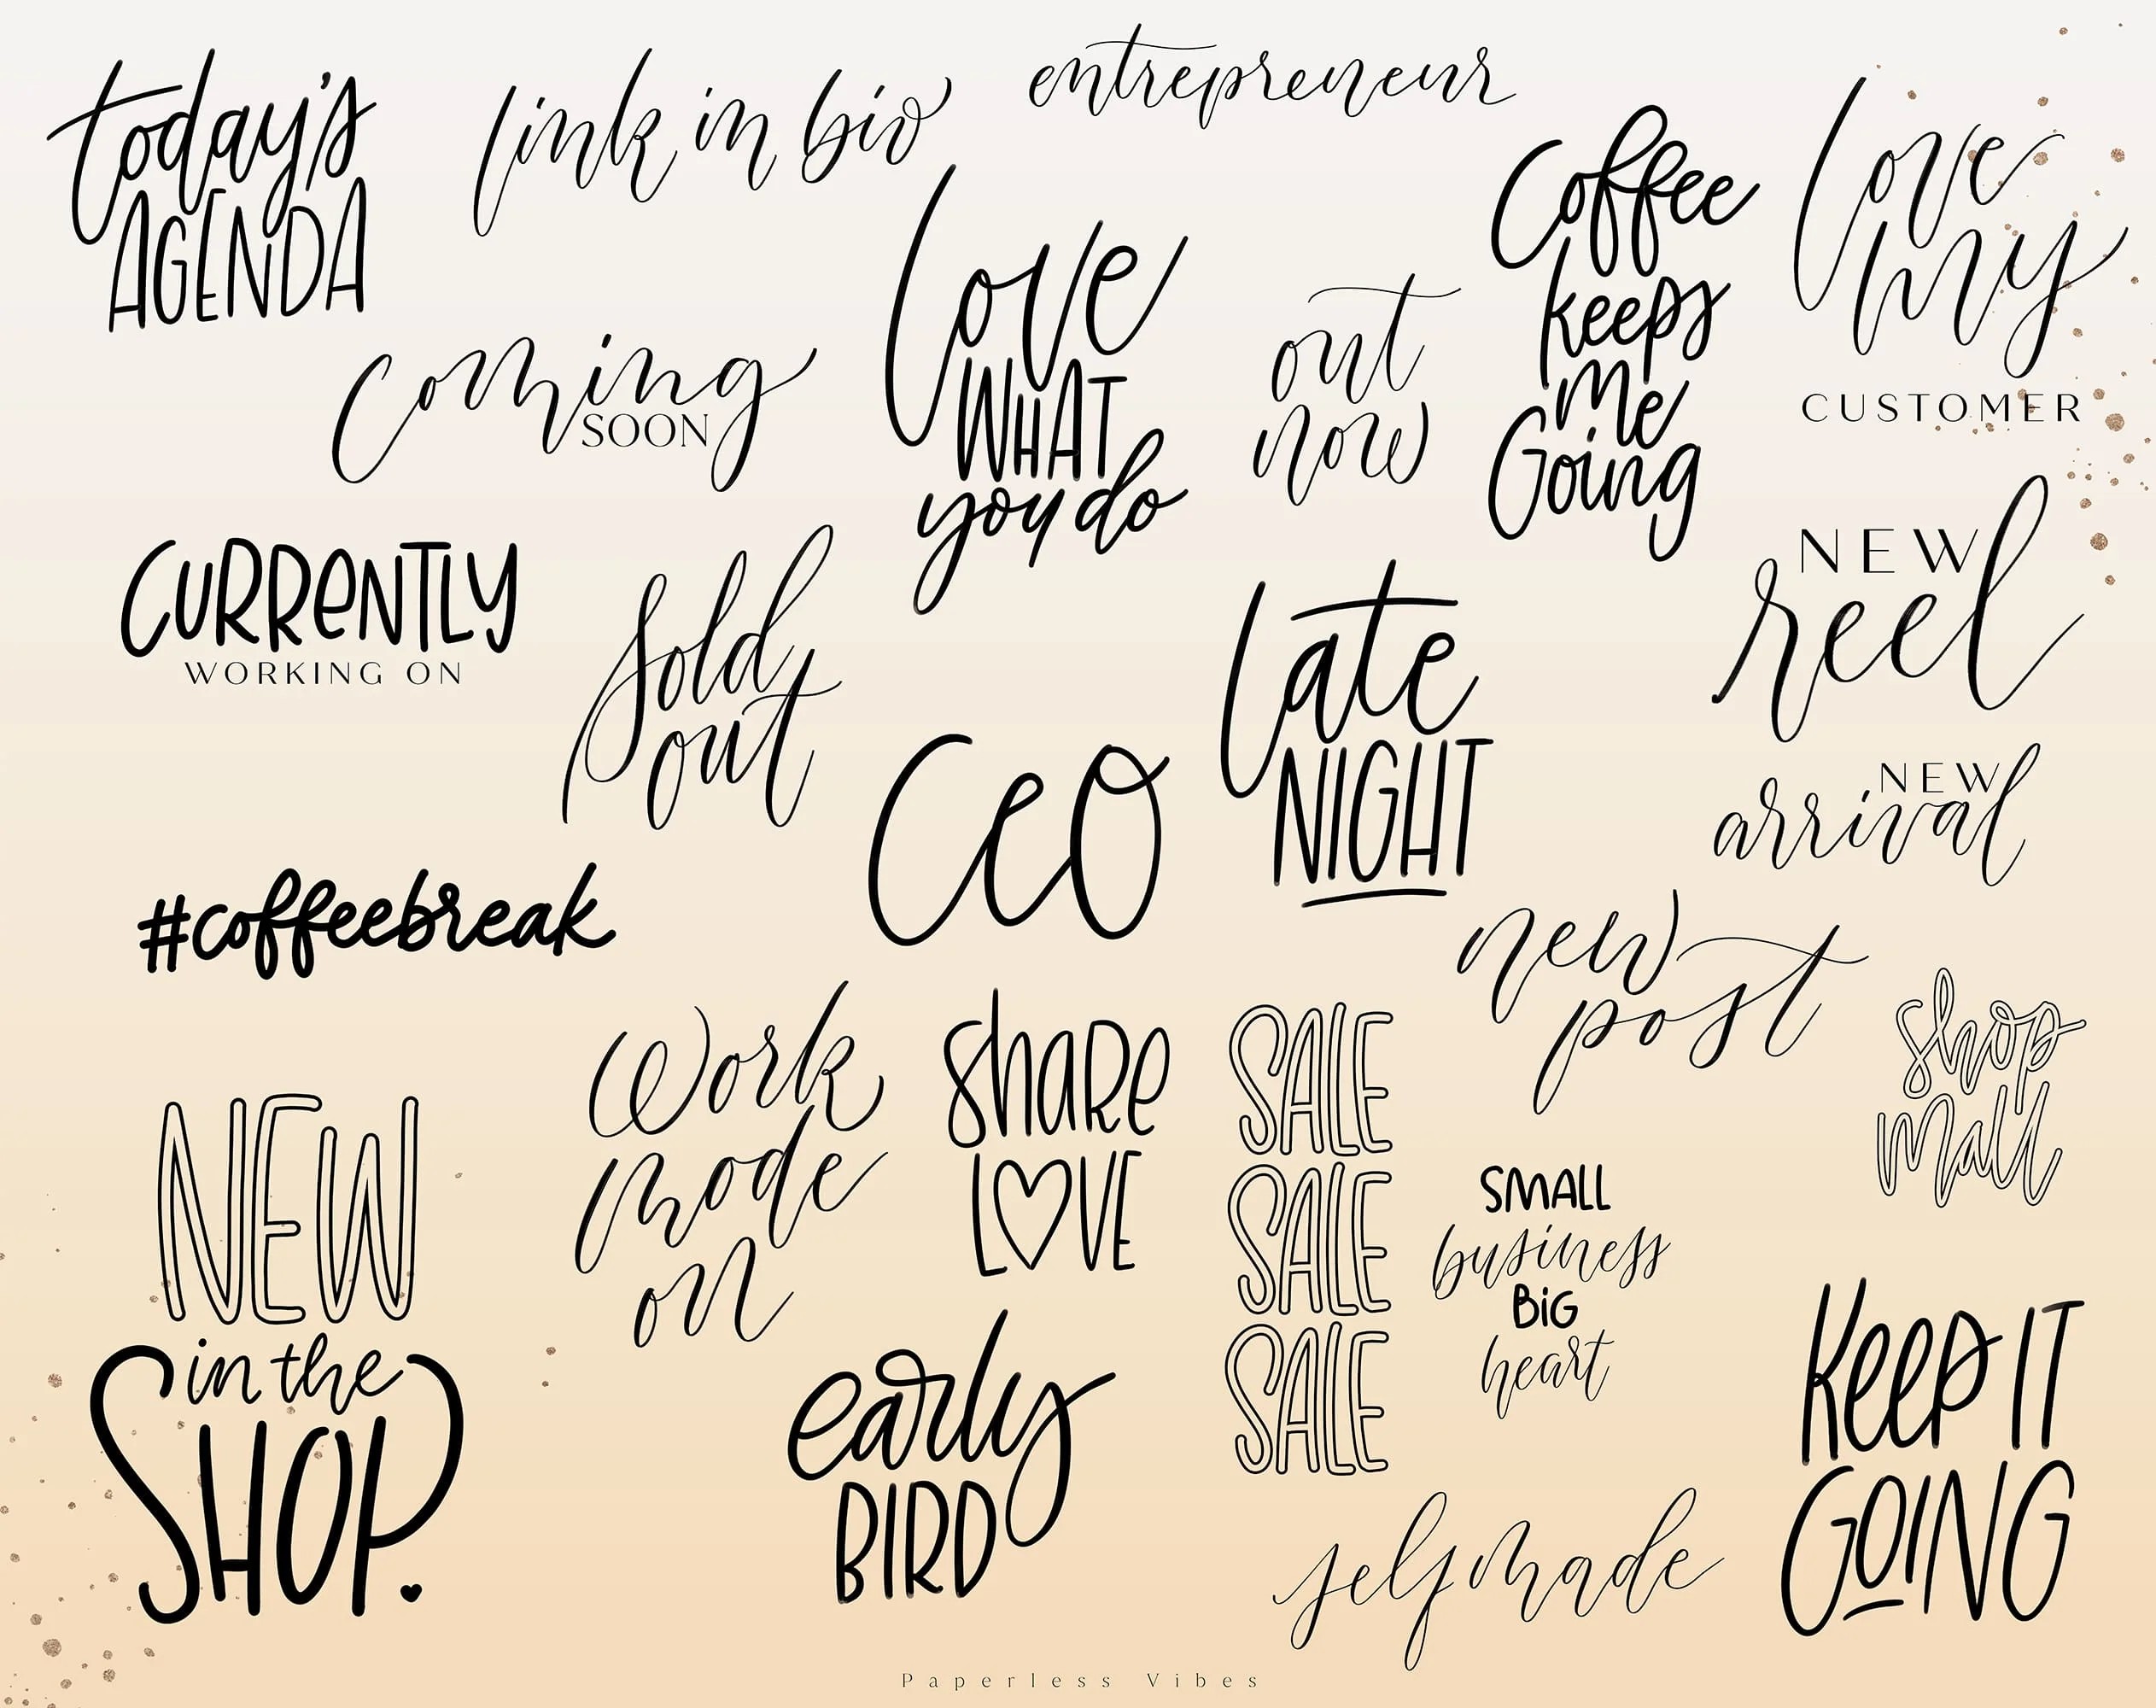 today's
AGENDA
link in bio
entrepreneur
Coffee
keeps
me
Going
love
my
CUSTOMER
coming
SOON
Love
WHAT
you do
out
now
CURReNTLY
WORKING ON
sold
out
late
NIGHT
NEW
reel
NEW
arrival
CeO
#coffeebreak
new
post
work
mode
on
share
LOVE
SALE
SALE
SALE
shop
mall
NEW
in the
SHOP.
SMALL
business
BiG
heart
early
BIRD
KeeP IT
GOING
selfmade
Paperless Vibes